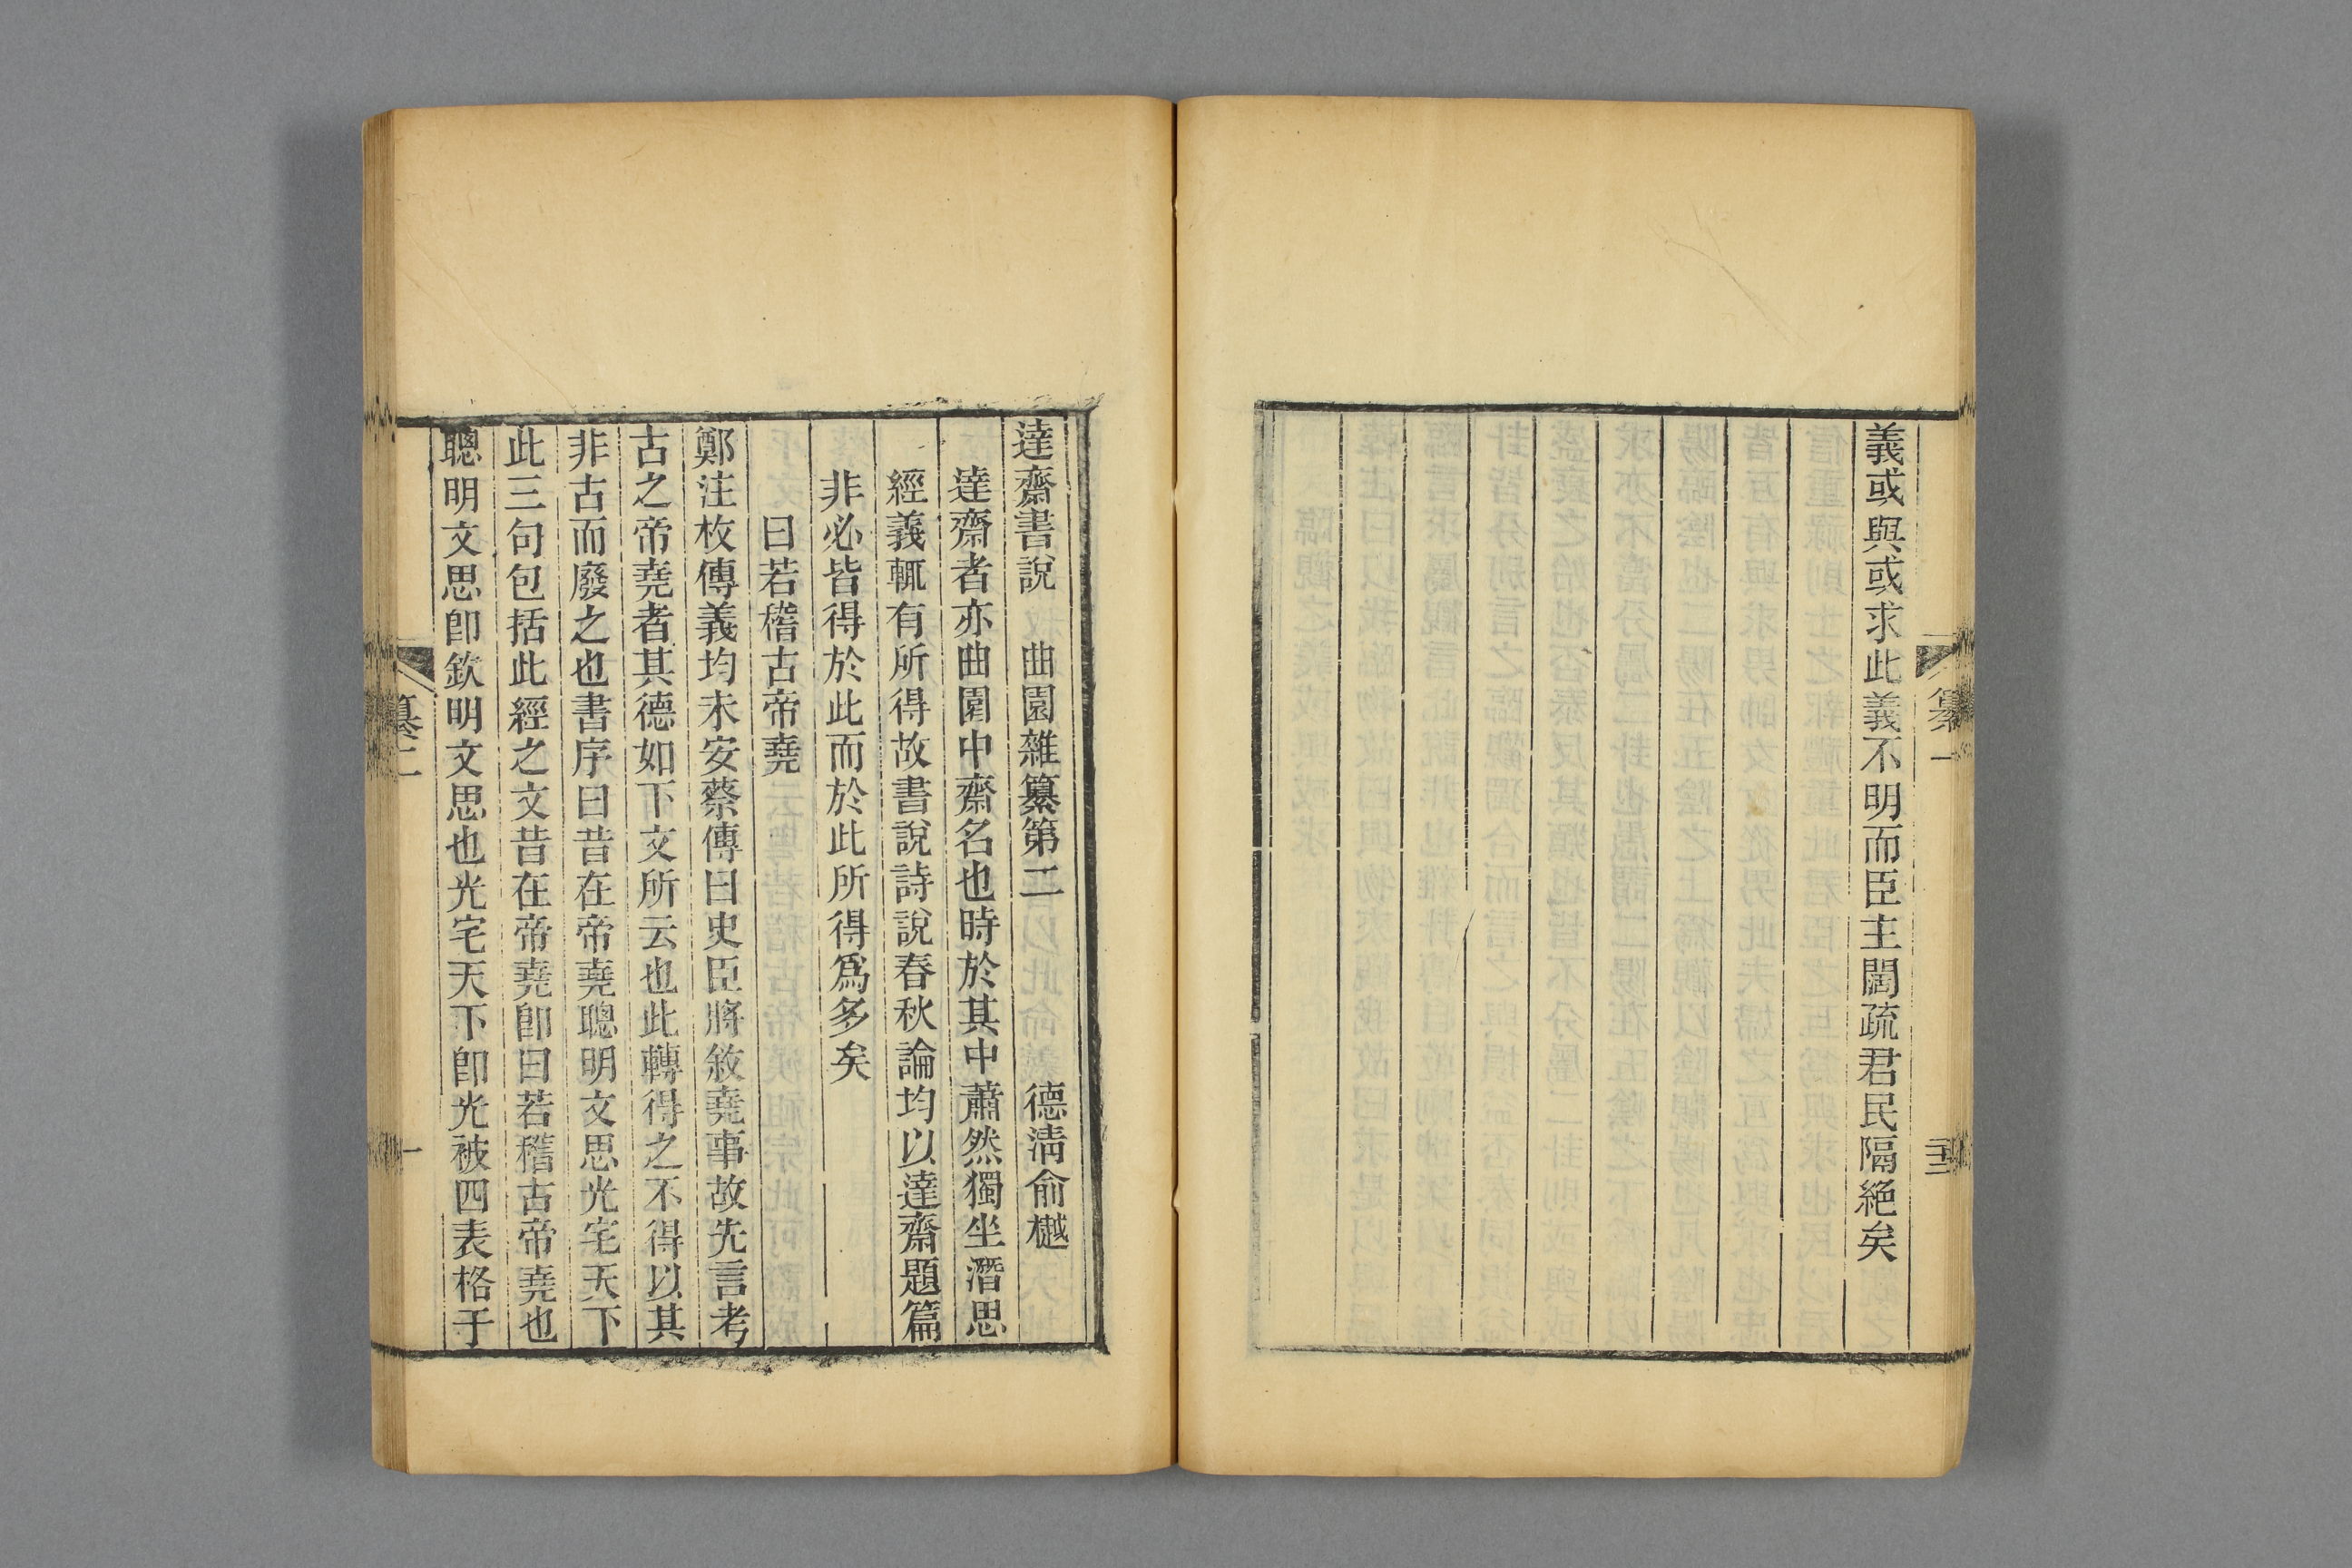 纂一
二十三
義或與或求此義不明而臣主闊疏君民隔絕矣
達齋書說　曲園雜纂第二　德淸俞樾
達齋者亦曲園中齋名也時於其中蕭然獨坐潛思
經義輒有所得故書說詩說春秋論均以達齋題篇
非必皆得於此而於此所得爲多矣
曰若稽古帝堯
鄭注枚傳義均未安蔡傳曰史臣將敘堯事故先言考
古之帝堯者其德如下文所云也此轉得之不得以其
非古而廢之也書序曰昔在帝堯聰明文思光宅天下
此三句包括此經之文昔在帝堯卽曰若稽古帝堯也
聰明文思卽欽明文思也光宅天下卽光被四表格于
纂二
一